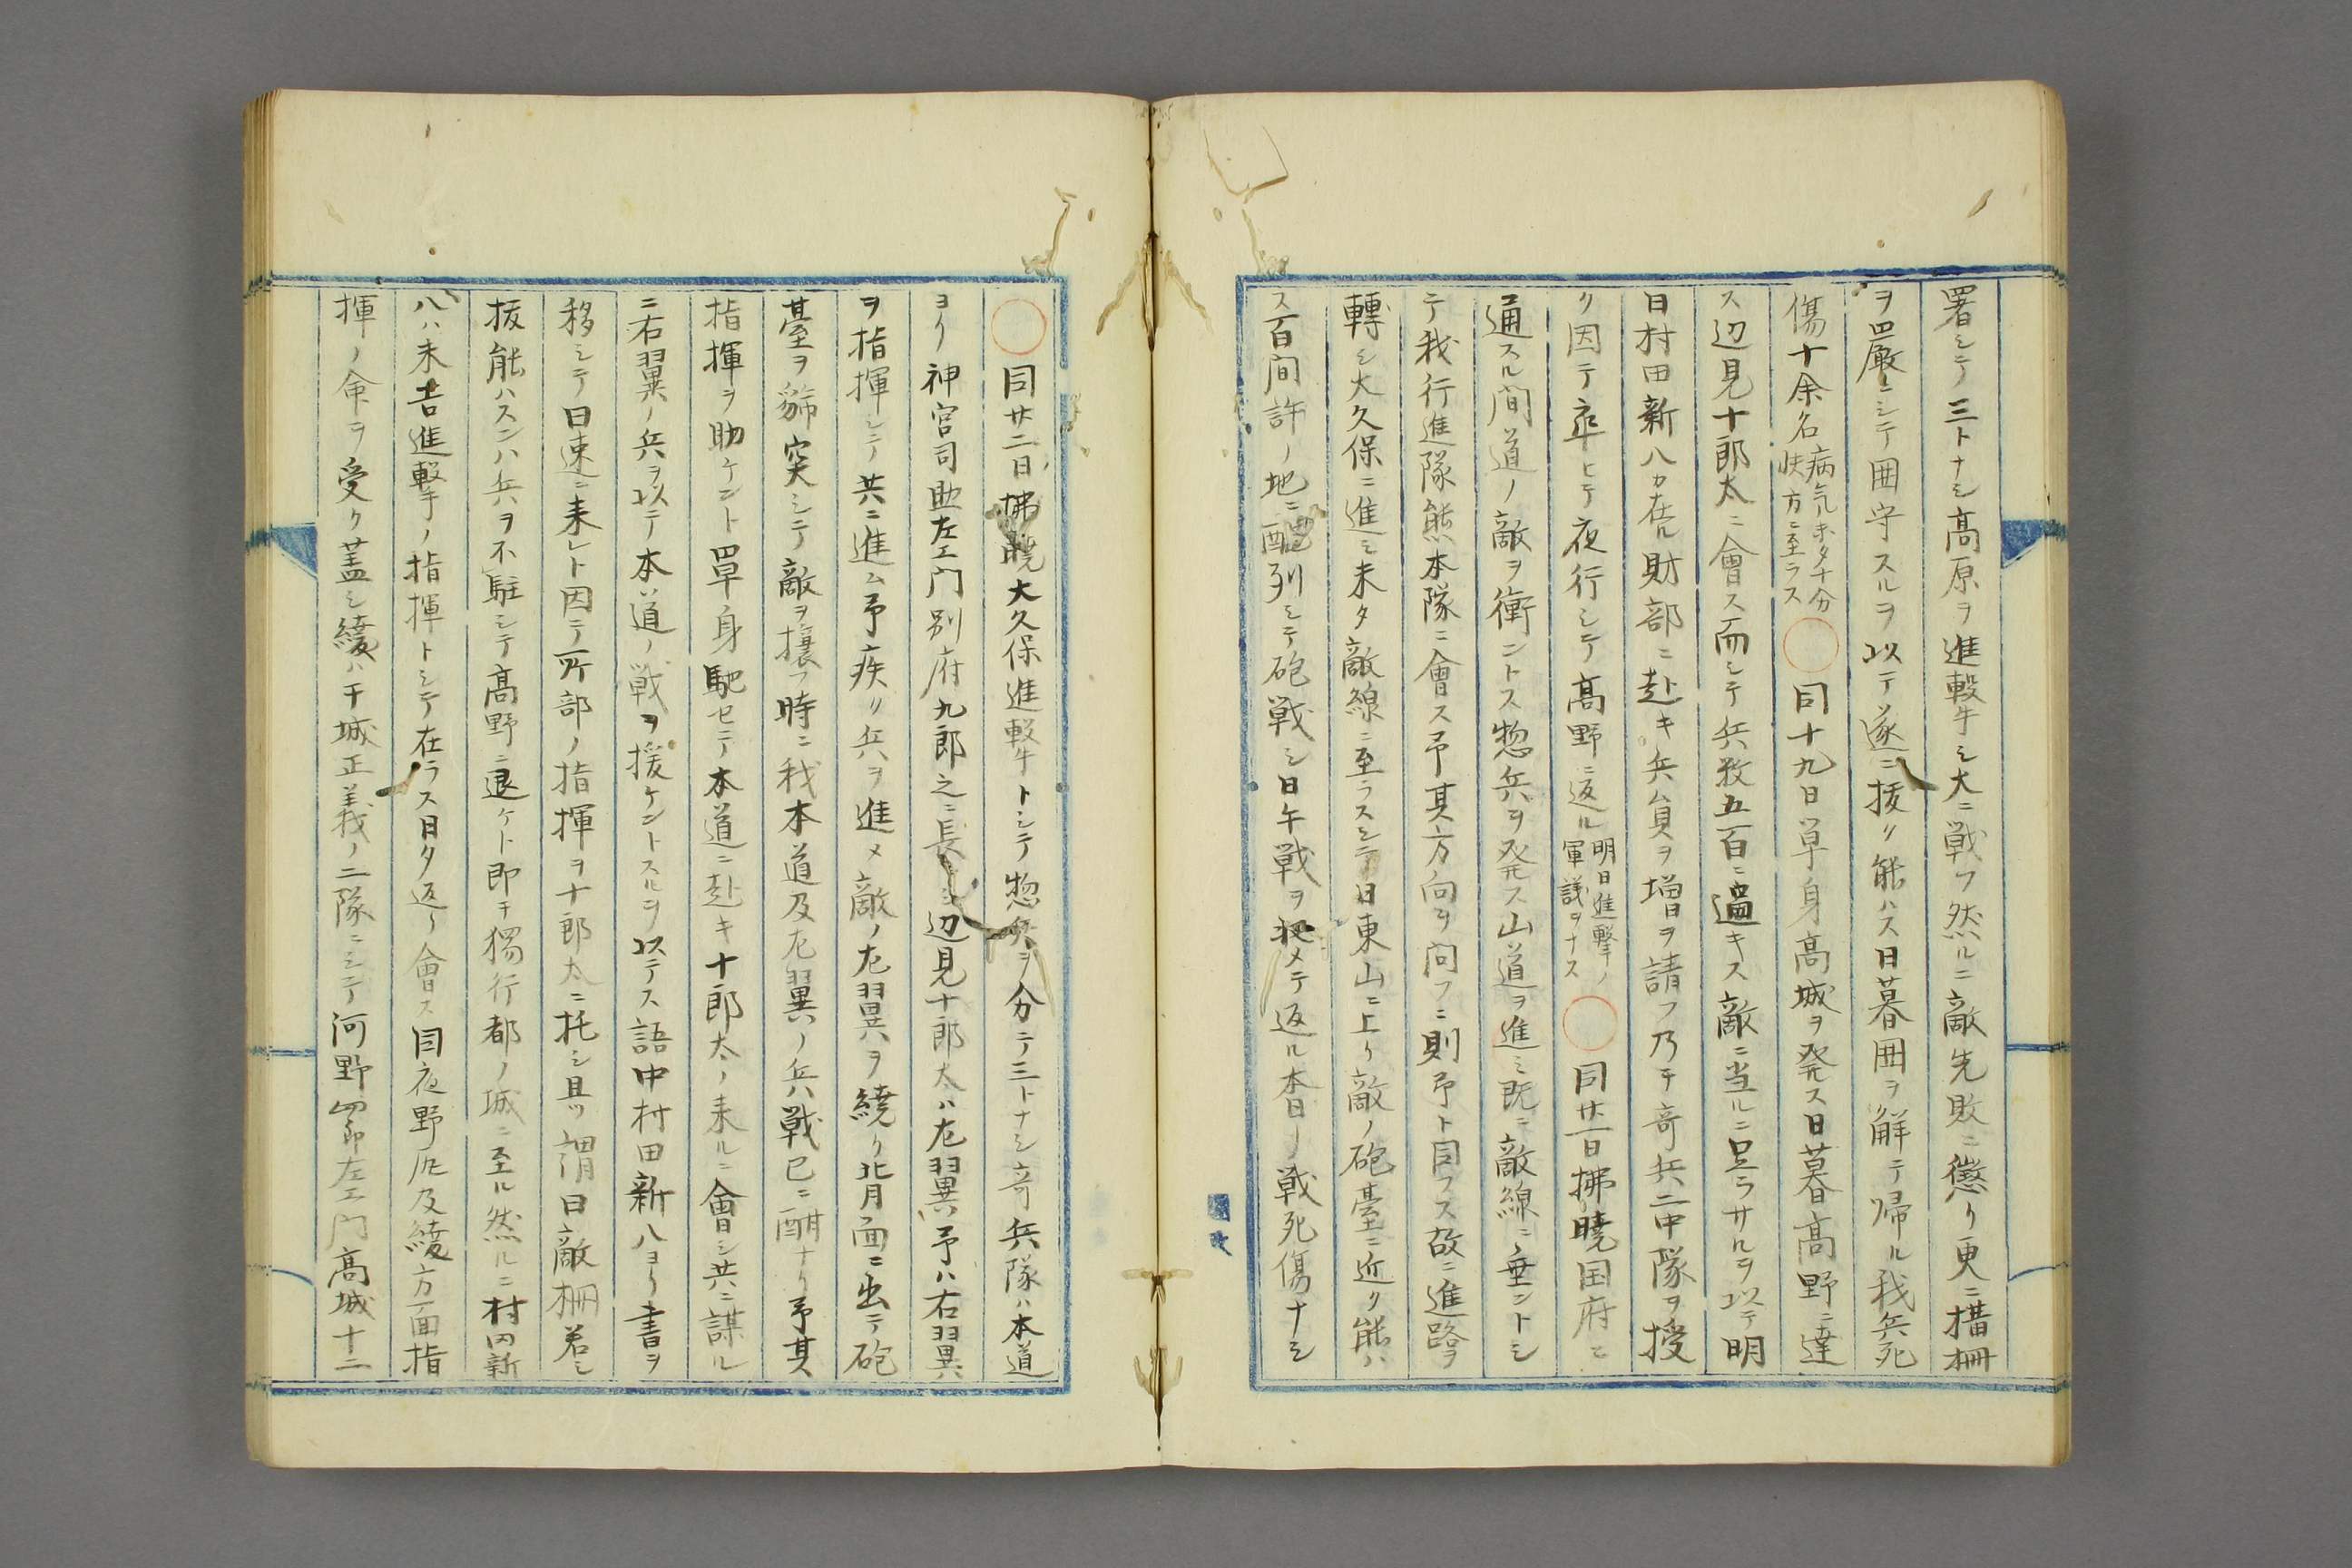 署シテ三トナシ高原ヲ進撃シ大ニ戦フ然ルニ敵先敗ニ懲リ更ニ構柵
ヲ厳ニシテ囲守スルヲ以テ遂ニ抜ク能ハス日暮囲ヲ解テ帰ル我兵死
傷十余名病気未タ十分快方ニ至ラス○同十九日単身高城ヲ発ス日暮高野ニ達
ス辺見十郎太ニ會ス而シテ兵数五百ニ過キス敵ニ当ルニ足ラサルヲ以テ明
日村田新八カ在ル財部ニ赴キ兵員ヲ増ヲ請フ乃チ奇兵二中隊ヲ授
ク因テ率ヒテ夜行シテ高野ニ返ル明日進撃ノ軍議ヲナス○同廿一日拂暁国府ニ
通スル間道ノ敵ヲ衝ントス惣兵ヲ発ス山道ヲ進ミ既ニ敵線ニ垂ントシ
テ我行進隊熊本隊ニ會ス予其方向ヲ問フニ則予ト同フス故ニ進路ヲ
轉シ大久保ニ進ミ未タ敵線ニ至ラスシテ日東山ニ上リ敵ノ砲臺ニ近ク能ハ
ス百間許ノ地ニ配列シテ砲戦シ日午戦ヲ収メテ返ル本日ノ戦死傷ナシ
○同廿二日拂暁大久保進撃トシテ惣兵ヲ分テ三トナシ奇兵隊ハ本道
ヨリ神宮司助左エ門別府九郎之ニ長シ辺見十郎太ハ左翼予ハ右翼
ヲ指揮シテ共ニ進ム予疾ク兵ヲ進メ敵ノ左翼ヲ繞リ背面ニ出テ砲
臺ヲ衝突シテ敵ヲ攘フ時ニ我本道及左翼ノ兵戦已ニ酣ナリ予其
指揮ヲ助ケント單身馳セテ本道ニ赴キ十郎太ノ来ルニ會シ共ニ謀ル
ニ右翼ノ兵ヲ以テ本道ノ戦ヲ援ケントスルヲ以テス語中村田新八ヨリ書ヲ
移シテ曰速ニ来レト因テ所部ノ指揮ヲ十郎太ニ托シ且ツ謂曰敵柵若シ
抜能ハスンハ兵ヲ不駐シテ高野ニ退ケト即チ獨行都ノ城ニ至ル然ルニ村田新
八ハ末吉進撃ノ指揮トシテ在ラス日夕返リ會ス同夜野尻及綾方面指
揮ノ命ヲ受ク蓋シ綾ハ干城正義ノ二隊ニシテ河野四郎左エ門高城十二